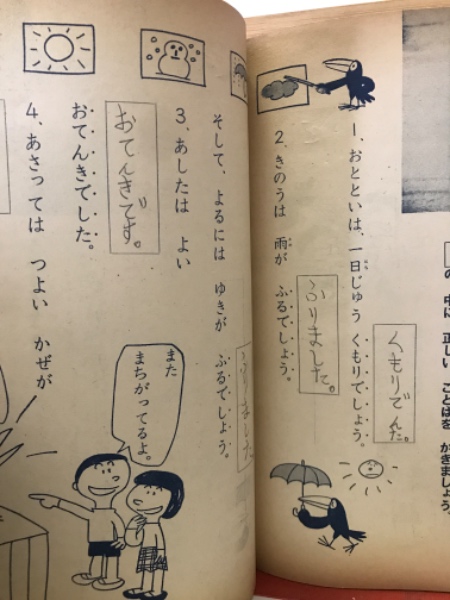 の 中に 正しい ことばを かきましょう。
くもりでした。
1、おとといは、一日じゅう くもりでしょう。
ふりました。
2、きのうは 雨が ふるでしょう。
ふりました
そして、よるには ゆきが ふるでしょう。
3、あしたは よい
おてんきです。
おてんきでした。
4、あさっては つよい かぜが
また
まちがってるよ。